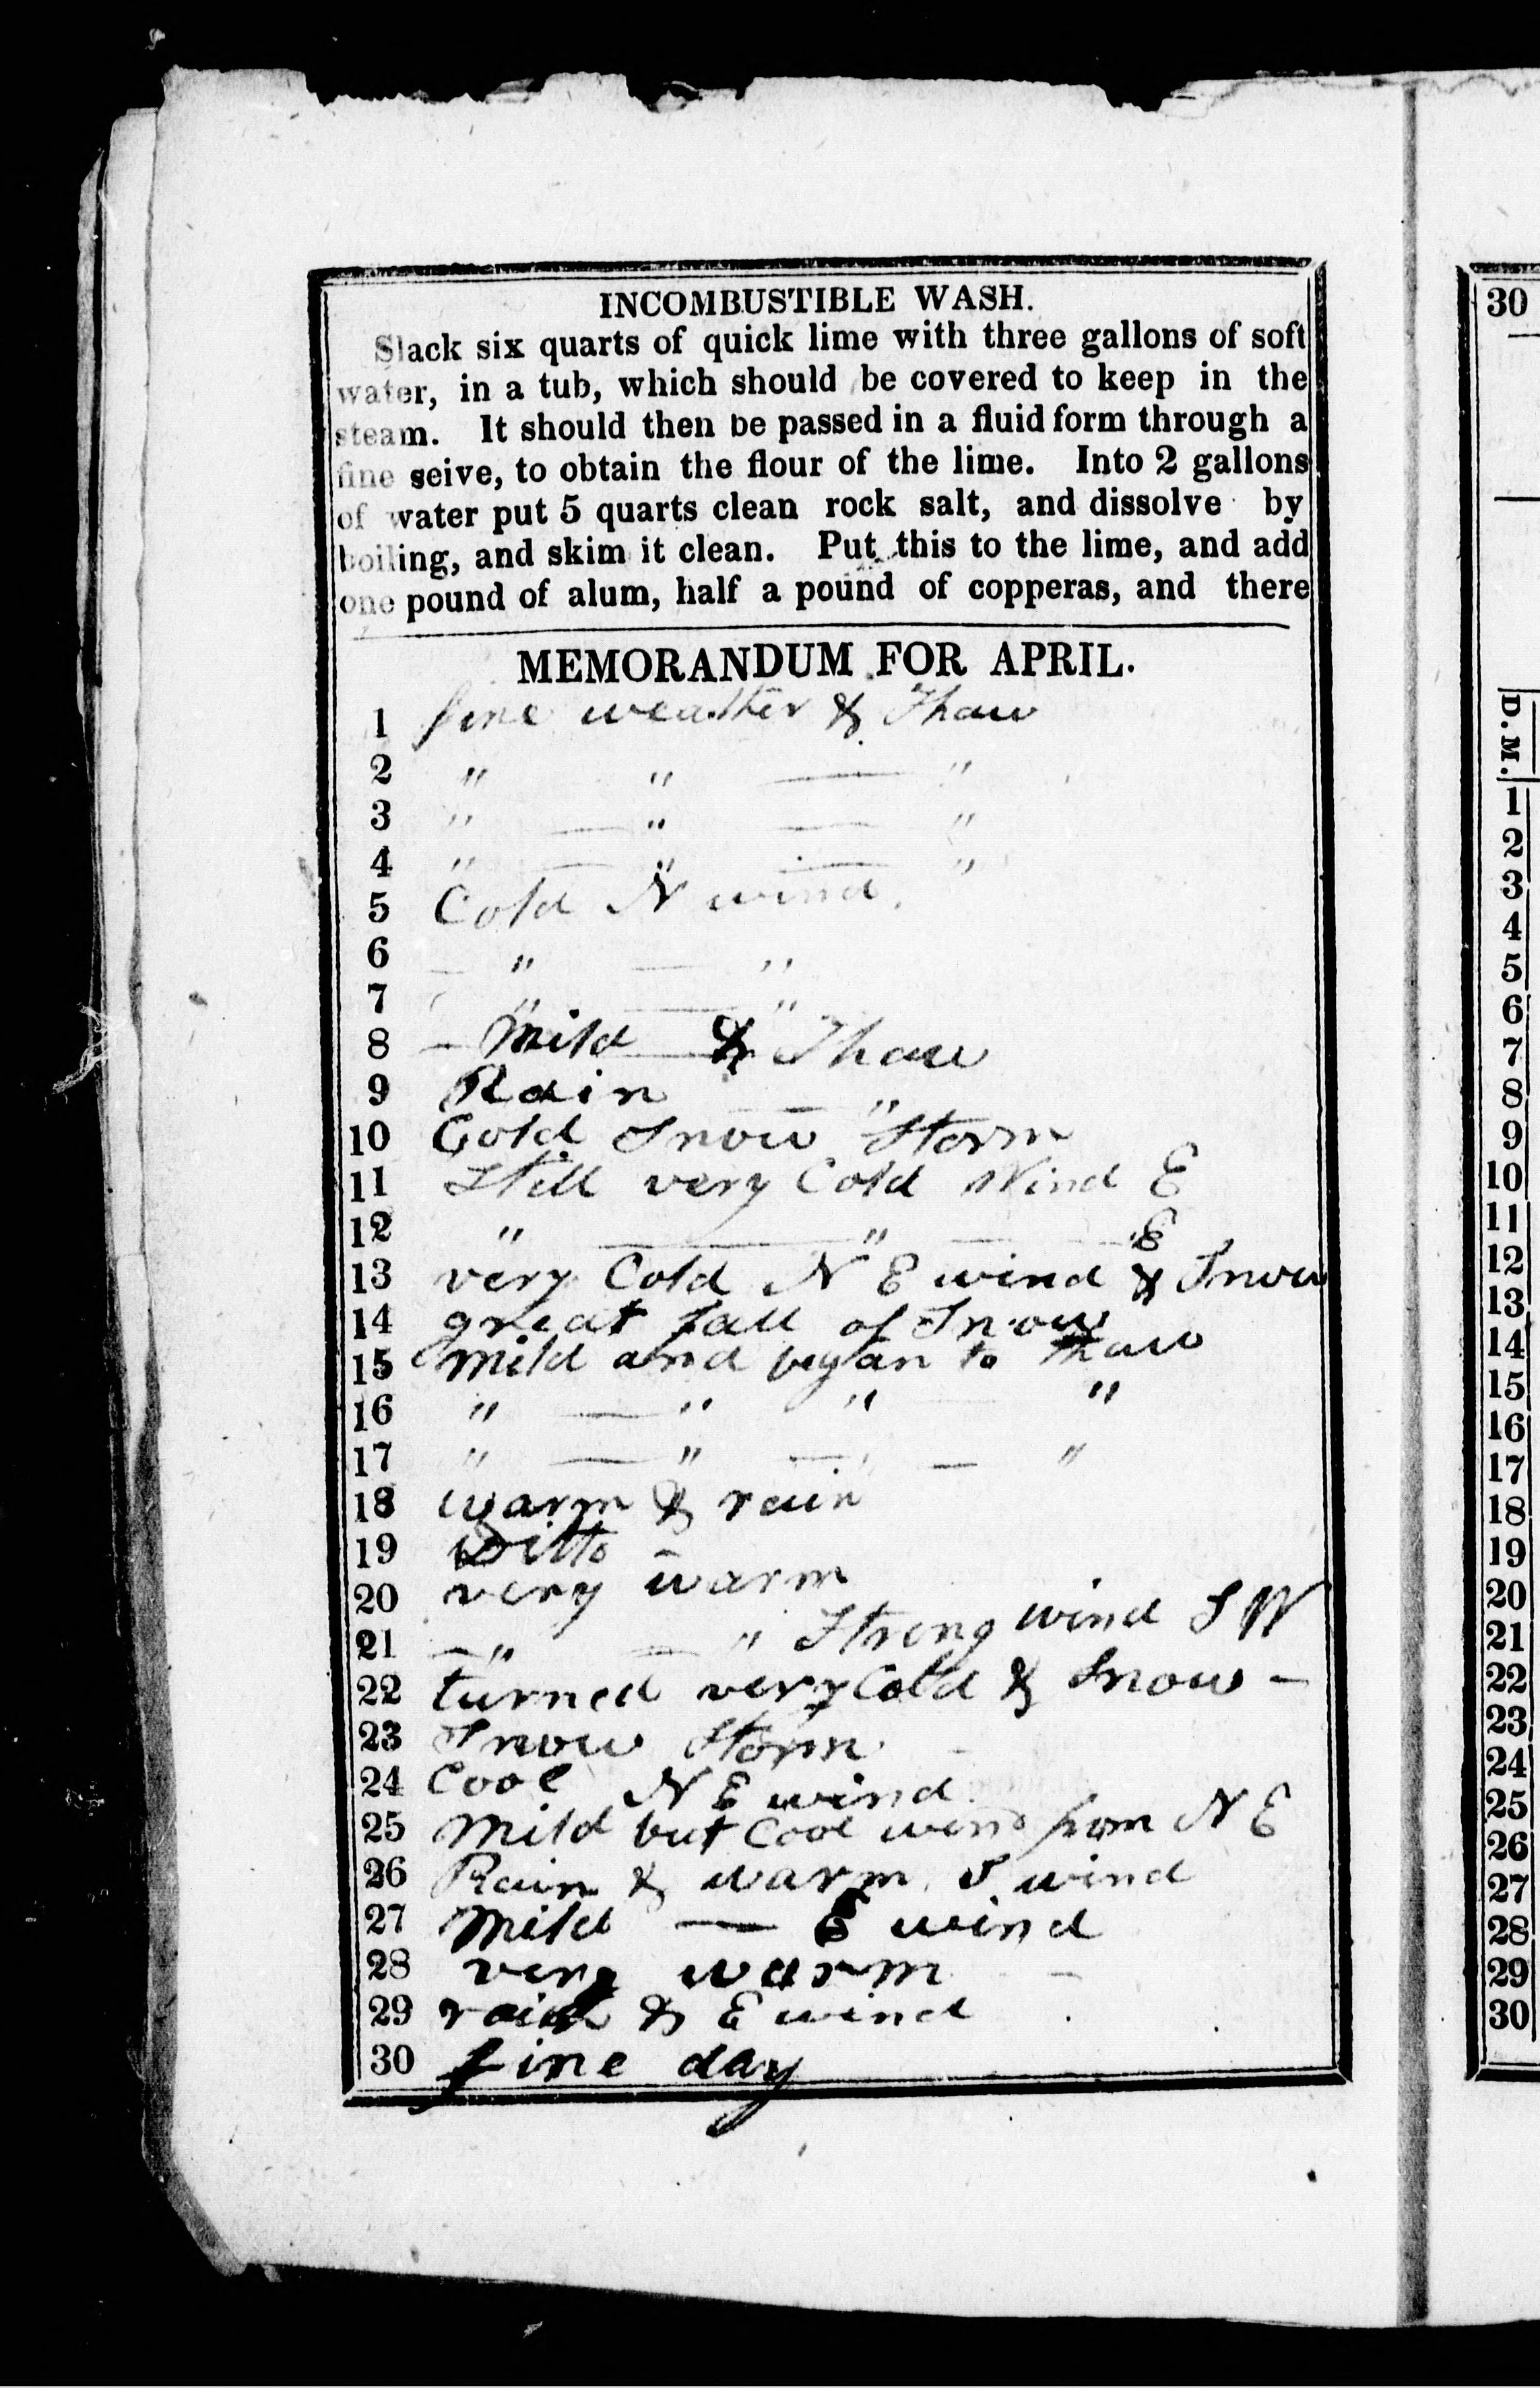 INCOMBUSTIBLE WASH.
Slack six quarts of quick lime with three gallons of soft
water, in a tub, which should be covered to keep in the
steam. It should then be passed in a fluid form through a
fine seive, to obtain the flour of the lime. Into 2 gallons
of water put 5 quarts clean rock salt, and dissolve by
boiling, and skim it clean. Put this to the lime, and add
one pound of alum, half a pound of copperas, and there
MEMORANDUM FOR APRIL.
1 fine weather & Thaw
2 " " — "
3 " — " — "
4 " — " — "
5 Cold N wind.
6 — " — "
7 " — "
8 — Mild & Thaw
9 Rain — — "
10 Cold Snow Storm
11 Still very Cold Wind E
12 " — " — "E
13 very Cold N E wind & Snow
14 great fall of Snow
15 Mild and began to thaw
16 " — " " "
17 " — " — " — "
18 warm & rain
19 Ditto —
20 very warm
21 — " — " Strong wind S W
22 turned very Cold & Snow —
23 Snow Storm
24 Cool N E wind
25 Mild but Cool wind from N E
26 Rain & warm S wind
27 Mild — E wind
28 very warm
29 rain & E wind
30 fine day
30
D. M.
1
2
3
4
5
6
7
8
9
10
11
12
13
14
15
16
17
18
19
20
21
22
23
24
25
26
27
28
29
30